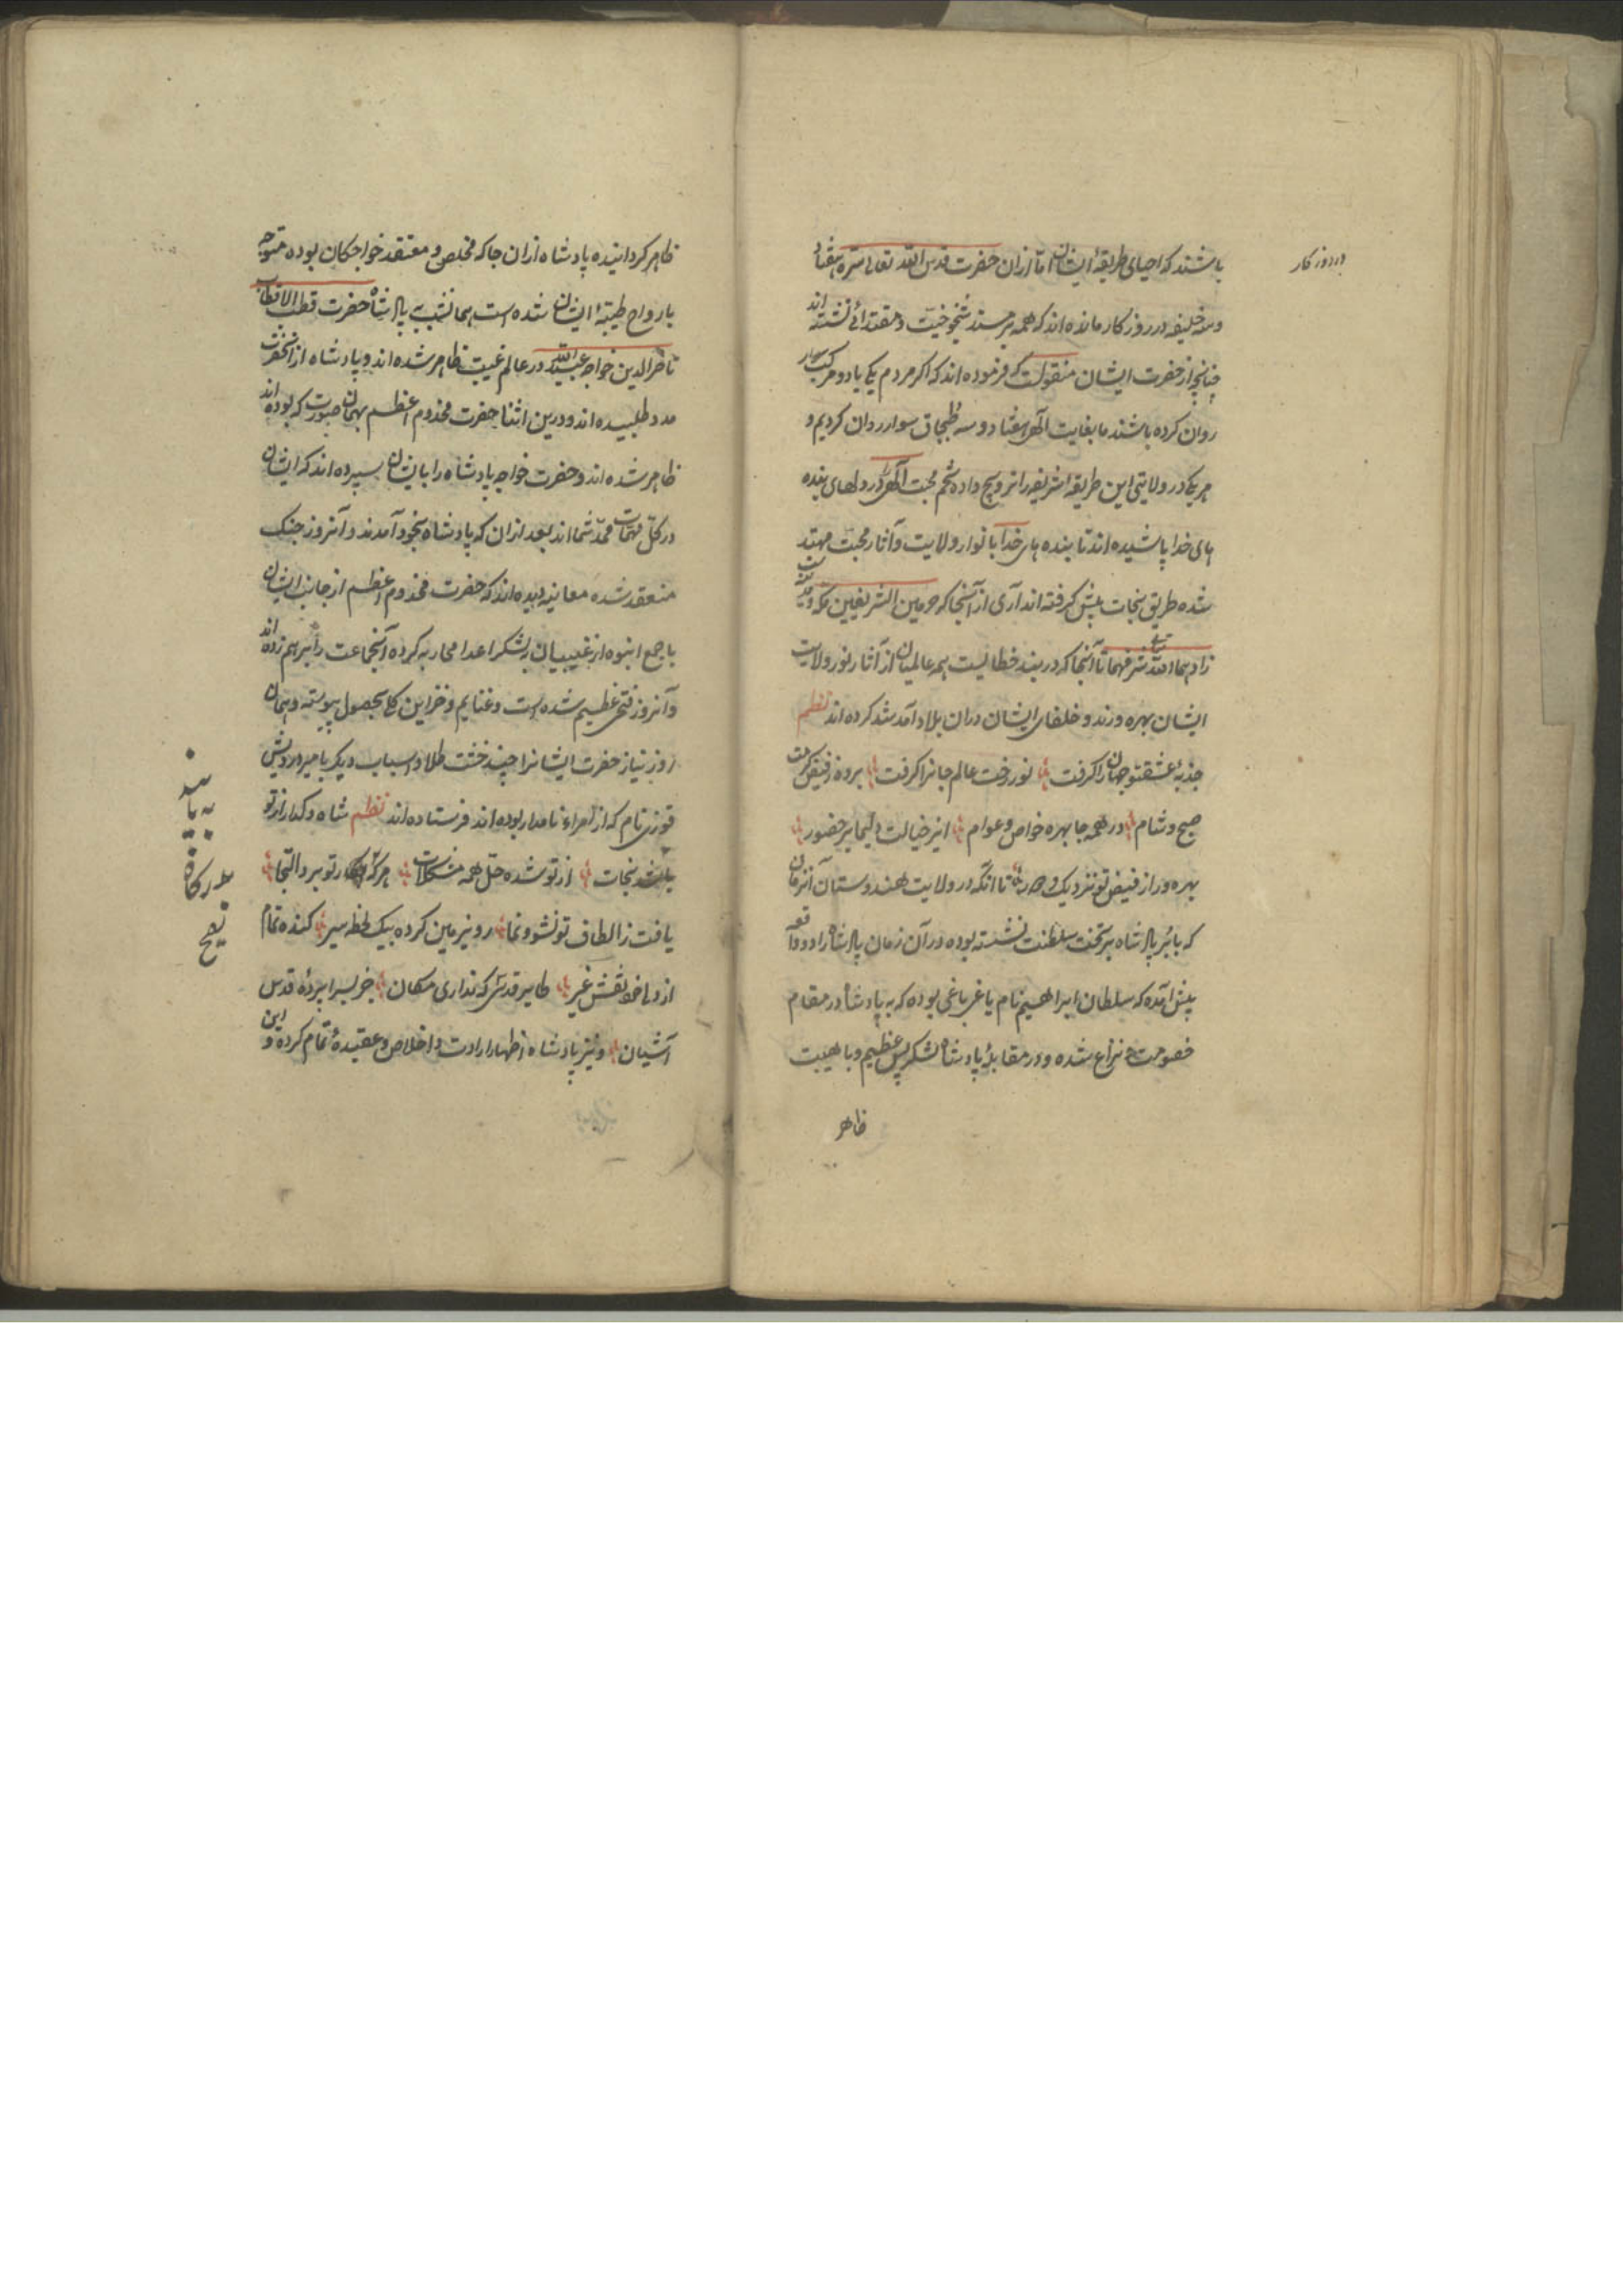 باشند که احیای طریقهٔ ایشان اما ازان حضرت قدس الله تعالی سره هفتاد
وسه خلیفه در روزکار مانده اند که همه بر مسند شیخوخیت ومقتدائی نشسته اند
در روزکار
چنانچه از حضرت ایشان منقولست که فرموده اند که اکر مردم یکی یا دو مرکب سوار
روان کرده باشند ما بغایت الهی هفتاد وسه طبجاق سوار روان کردیم و
هر یکی در ولایتی این طریقهٔ شریفه را ترویج داده تخم محبت الهی را در دلهای بنده
های خدا پاشیده اند تا بنده های خدا بانوار ولایت وآثار محبت مهتد
شده طریق نجات پیش کرفته اند آری از آنجا که حرمین الشریفین مکه ومدینه است
زادهما الله تعالی شرفهما تا آنجا که دربند خطا یست همه عالمیان از آثار نور ولایت
ایشان بهره ورند وخلفای ایشان دران بلاد آمد شد کرده اند نظم
جذبهٔ عشقتو جهان را کرفت نور رخت عالم جانرا کرفت برده ز فیض کرمت
صبح وشام در همه جا بهره خواص وعوام از خیالت دایما بر حضور
بهره ور از فیض تو نزدیک و دور تا انکه در ولایت هندوستان آنزمان
که بابر پادشاه بر تخت سلطنت نشسته بوده در آن زمان پادشاه را دو واقعه
پیش آمده که سلطان ابراهیم نام یاغی باغی بوده که به پادشاه در مقام
خصومت و نزاع شده ودر مقابلهٔ پادشاه لشکر بس عظیم وبا هیبت
ظاهر
ظاهر کردانیده پادشاه ازان جا که مخلص و معتقد خواجکان بوده متوجه
بارواح طیبهٔ ایشان شده است همانشب به پادشاه حضرت قطب الاقطاب
ناصر الدین خواجه عبیدالله در عالم غیبت ظاهر شده اند وپادشاه از آنحضرت
مدد طلبیده اند ودرین اثنا حضرت مخدوم اعظم بهمان صورت که بوده اند
ظاهر شده اند وحضرت خواجه پادشاه را بایشان سپرده اند که ایشان
در کل مهمات ممد شما اند بعد ازان که پادشاه بخود آمدند وآنروز جنک
منعقد شده معاینه دیده اند که حضرت مخدوم اعظم از جانب ایشان
با جمع انبوه از غیبیان بلشکر اعدا محاربه کرده آنجماعت را برهم زده اند
وآنروز فتحی عظیم شده است وغنایم وخزاین کلی بحصول پیوسته وهمان
روز نیاز حضرت ایشانرا چند خشت طلا و اسباب دیکر با میر درویش
قوزی نام که از امراء نامدار بوده اند فرستاده اند نظم شاه و کدا را ز تو
باشد نجات از تو شده حل همه مشکلات هر که بدرکاه تو برد التجا
به یا سد
بدرکاه
صح
یافت ز الطاف تو نشو ونما رو بزمین کرده بیک لحظه سیر کنده تمام
از دل خود نقش غیر طایر قدسی که نداری مکان جز بسراپردهٔ قدس
آشیان ونیز پادشاه اظهار ارادت و اخلاص وعقیدهٔ تمام کرده و این